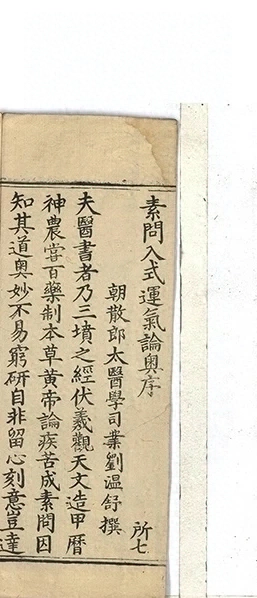 素問入式運氣論奧序
所七
朝散郎太醫學司業劉溫舒撰
夫醫書者乃三墳之經伏羲觀天文造甲曆
神農嘗百藥制本草黃帝論疾苦成素問因
知其道奧妙不易窮研自非留心刻意豈達